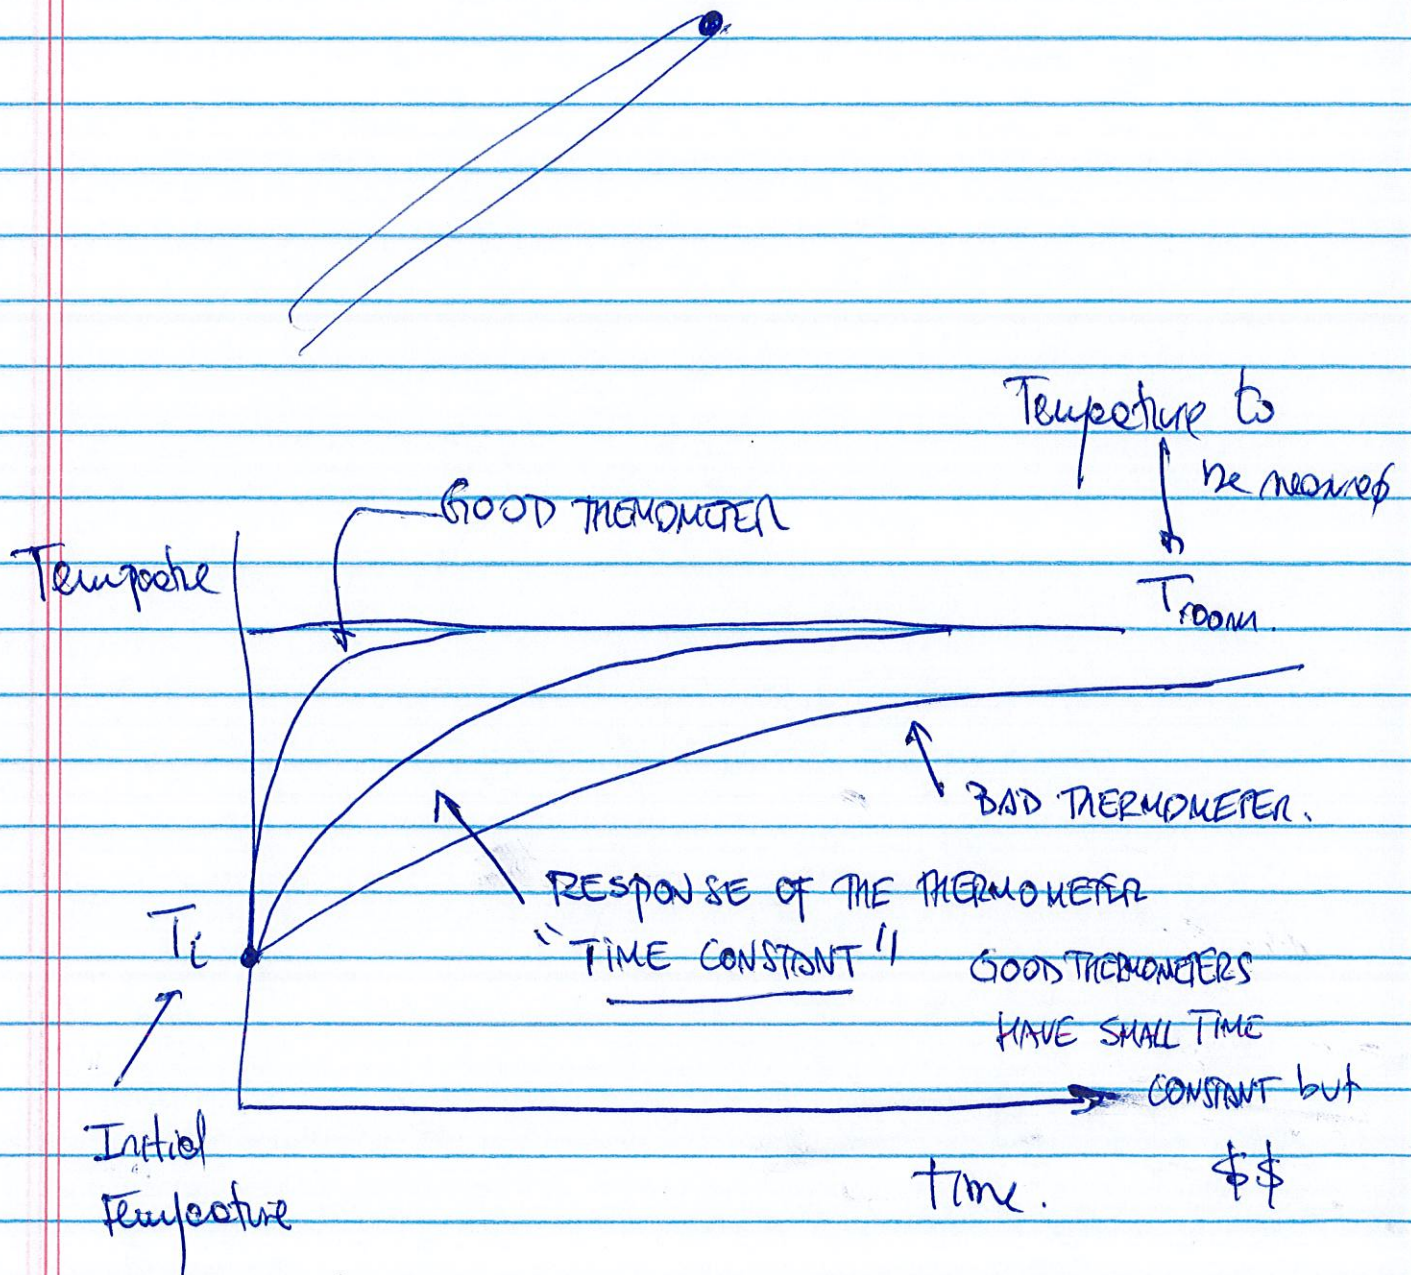 Temperature to
be measured
GOOD THEMOMETER
Temperature
Troom.
BAD THERMOMETER.
RESPONSE OF THE THERMOMETER
"TIME CONSTANT"
Ti
GOOD THERMOMETERS
HAVE SMALL TIME
CONSTANT but
$$
Initial
temperature
time.